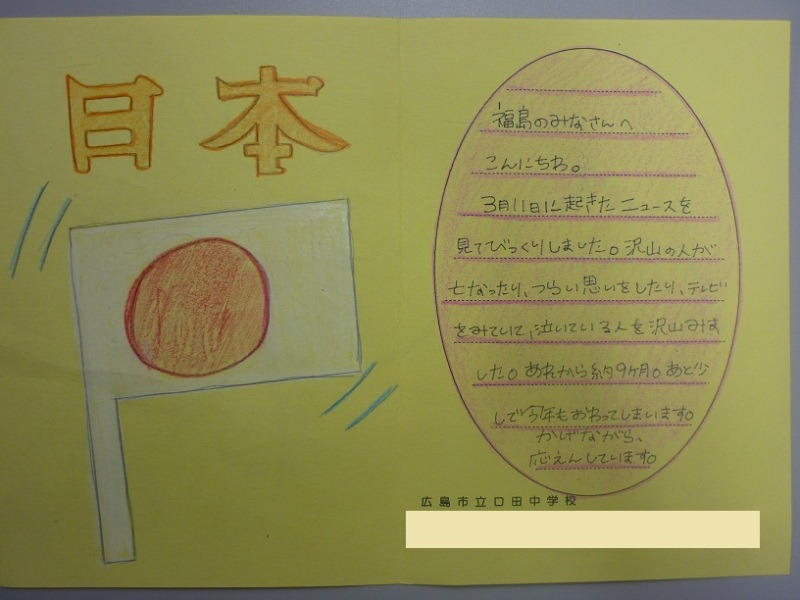 日本
福島のみなさんへ
こんにちわ。
3月11日に起きたニュースを
見てびっくりしました。沢山の人が
亡なったり、つらい思いをしたり、テレビ
をみていて、泣いている人を沢山みま
した。あれから約9ヶ月。あと少
しで今年もおわってしまいます。
かげながら、
応えんしています。
広島市立口田中学校